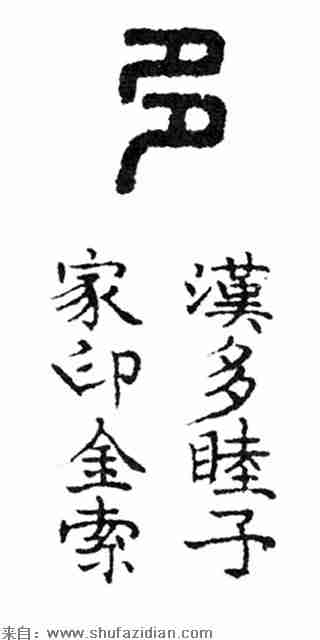 多
漢多睦子
家印金索
来自：www.shufazidian.com